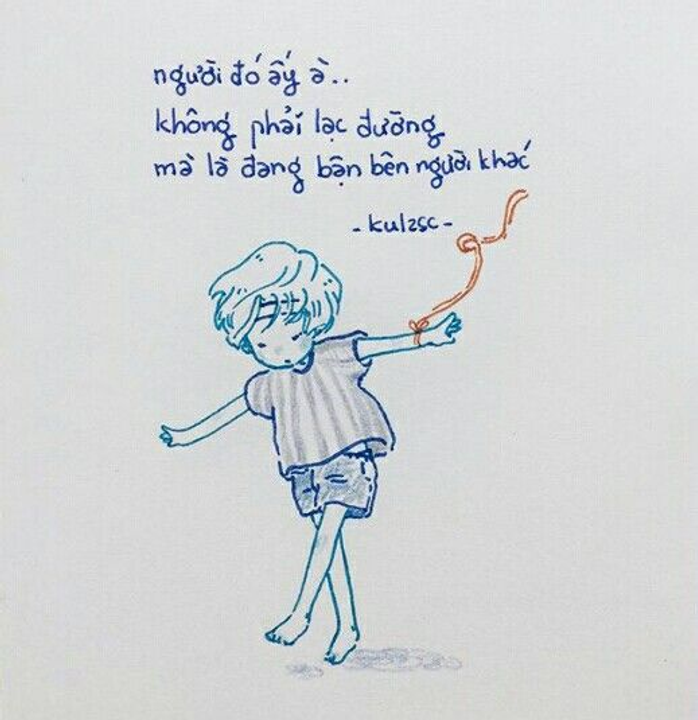 người đó ấy à..
không phải lạc đường
mà là đang bận bên người khác
- kulzsc -